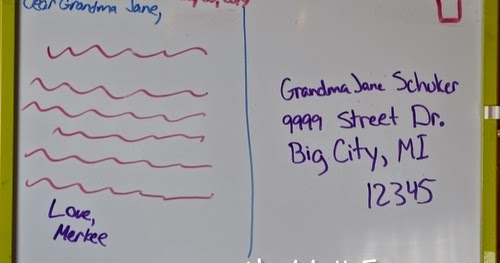 Dear Grandma Jane,
Love,
Merkee
Grandma Jane Schuker
9999 Street Dr.
Big City, MI
12345